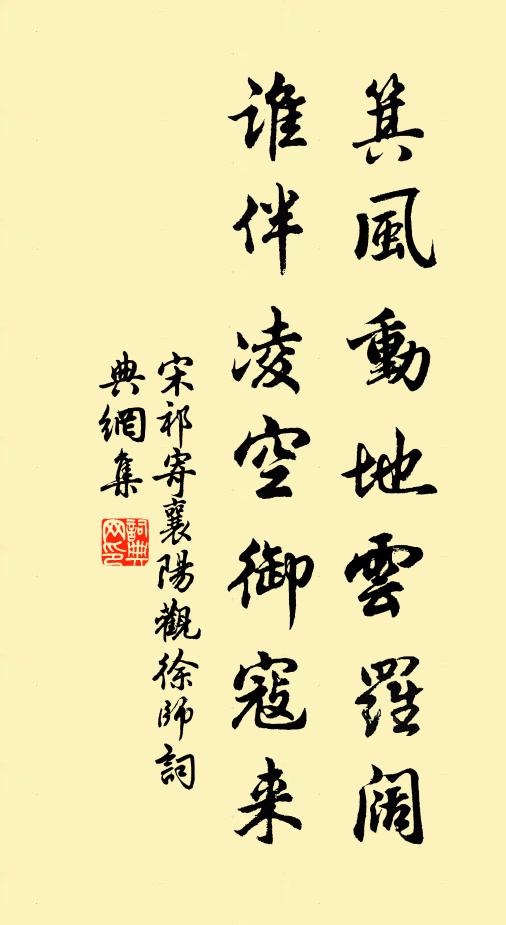 箕風動地雲羅阔
誰伴凌空御寇来
宋祁寄襄陽觀徐師詞
典網集
詞典
网印